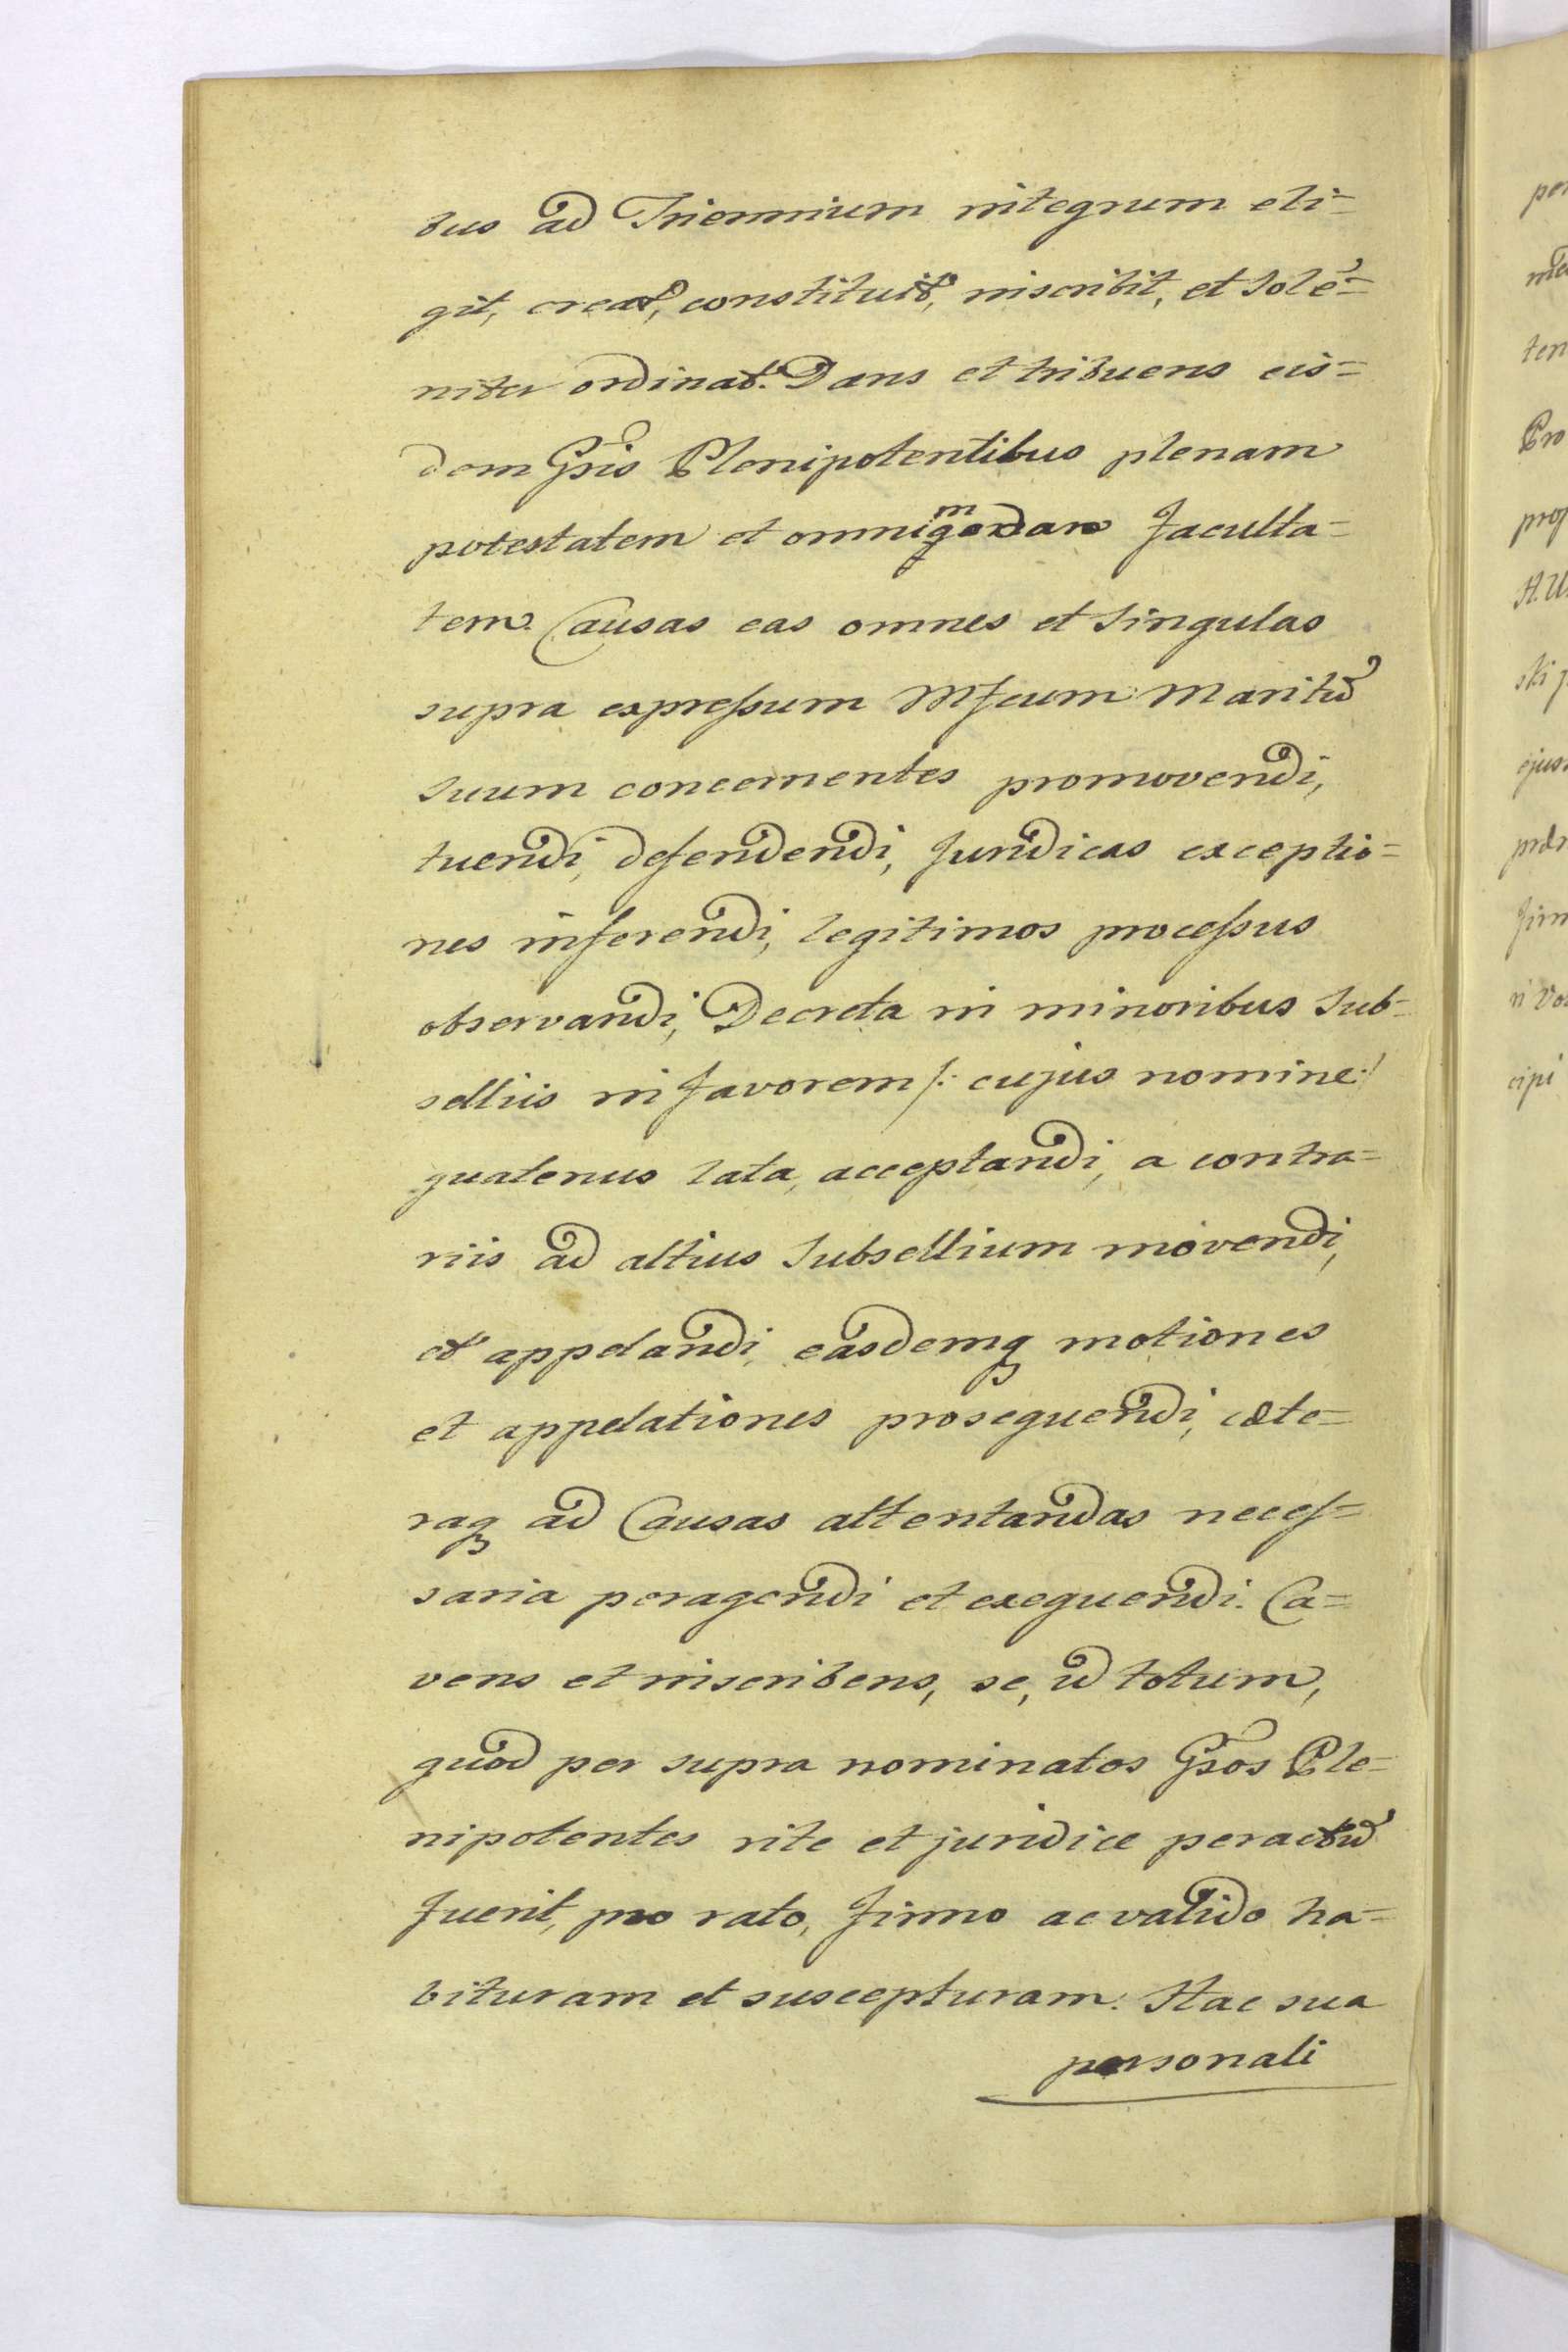 bus ad Triennium integrum eli=
git, creat, constituit, inscribit, et Solē=
niter ordinat. Dans et tribuens eis=
dem Gsis Plenipotentibus plenam
potestatem et omnigmodam faculta=
tem. Causas eas omnes et singulas
supra expressum Mfcum Maritū
suum concernentes promovendi,
tuendi, defendendi, Juridicas exceptio=
nes inferendi, legitimos processus
observandi, Decreta in minoribus Sub=
selliis in favorem /: cujus nomine :/
quatenus lata, acceptandi, a contra=
riis ad altius Subsellium movendi,
et appelandi, easdemq motiones
et appelationes prosequendi, cæte=
raq ad Causas attentandas neces=
saria peragendi et exequendi. Ca=
vens et inscribens, se, id totum,
quod per supra nominatos Gsos Ple=
nipotentes rite et juridice peractū
fuerit, pro rato, firmo ac valido ha=
bituram et suscepturam. Hac sua
personali
per
ten
Pro
prop
H.U.
ski
ejus
firm
ni Vo
cipi